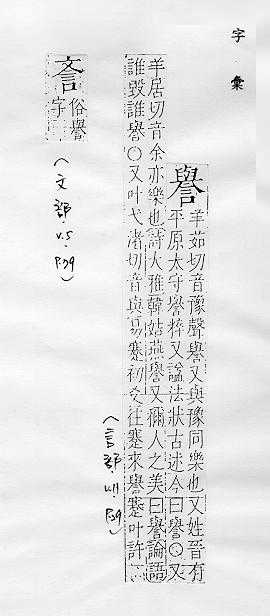 字彙
譽 羊茹切音豫聲譽又與豫同樂也又姓晉有
平原太守譽粹又謚法狀古述今曰譽〇又
羊居切音余亦樂也詩大雅韓姞燕譽又稱人之美曰譽論語
誰毀誰譽〇又叶弋渚切音與易蹇初爻往蹇來譽蹇叶許
(言部.v.11.p.39)
俗譽
字
(文部.v.5.p.39)